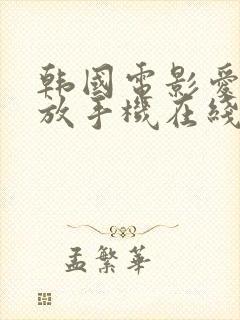 韩國電影愛
放手機在綫
孟繁華